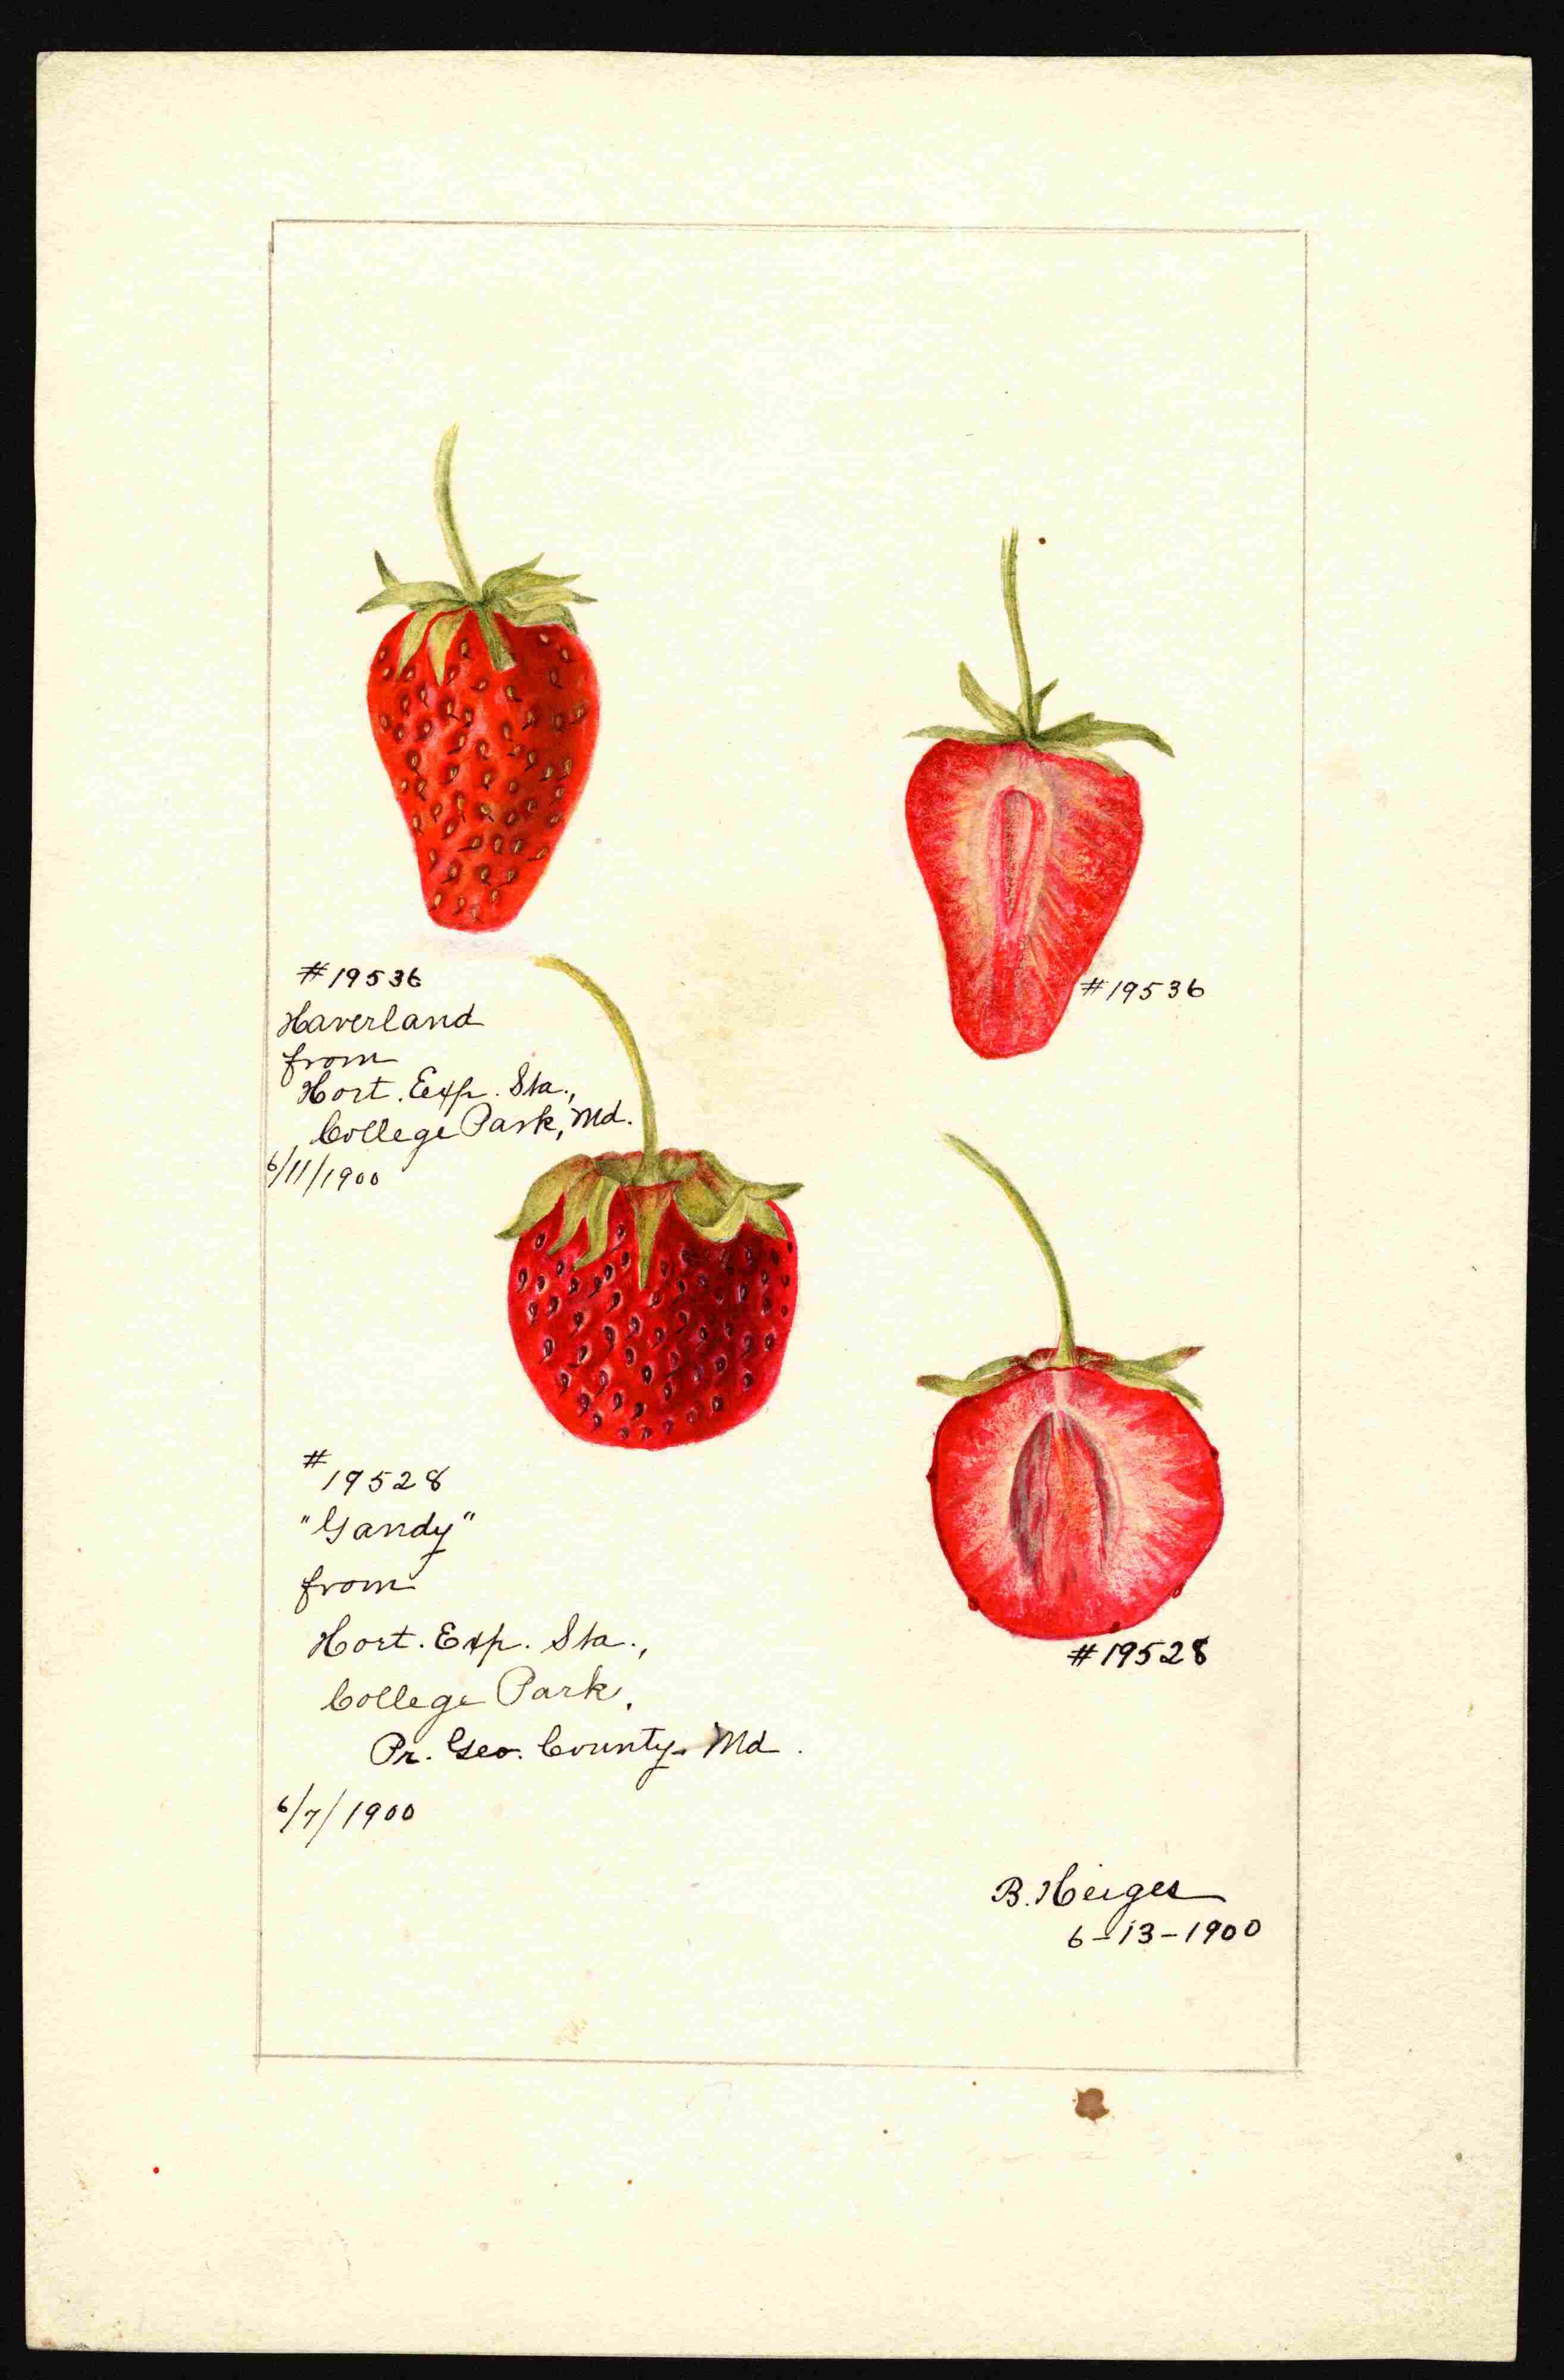 #19536
Haverland
from
Hort. Exp. Sta.,
College Park, Md.
6/11/1900
#19536
#
19528
"Gandy"
from
Hort. Exp. Sta.,
College Park,
Pr. Geo. County, Md.
6/7/1900
#19528
B. Heiges
6-13-1900